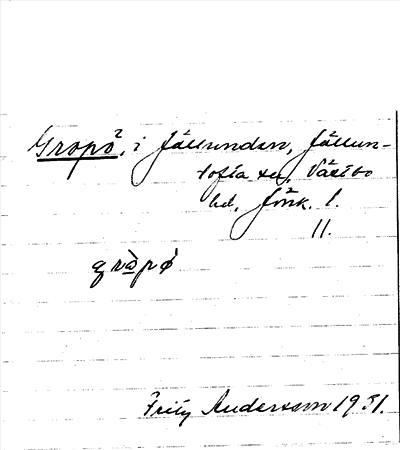 Gropö, i Jällunden, Jällun-
tofta sn, Västbo
hd, Jönk. l.
11.
gràpø̀
Fritz Andersson 1931.